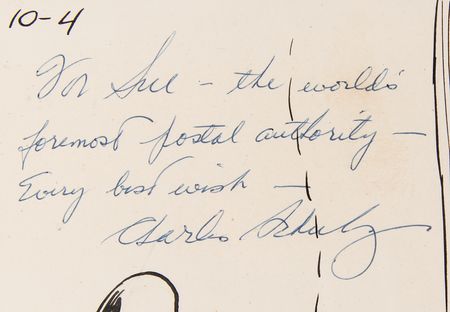 10-4
For Sue — the world's
foremost postal authority —
Every best wish —
Charles Schulz